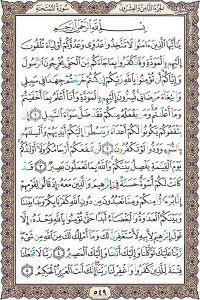 سُورَةُ المُمْتَحنَة
الجُزْءُ الثَّامِنُ وَالعِشْرُونَ
بِسْمِ ٱللَّهِ ٱلرَّحْمَٰنِ ٱلرَّحِيمِ
يَٰٓأَيُّهَا ٱلَّذِينَ ءَامَنُوا۟ لَا تَتَّخِذُوا۟ عَدُوِّى وَعَدُوَّكُمْ أَوْلِيَآءَ تُلْقُونَ
إِلَيْهِم بِٱلْمَوَدَّةِ وَقَدْ كَفَرُوا۟ بِمَا جَآءَكُم مِّنَ ٱلْحَقِّ يُخْرِجُونَ ٱلرَّسُولَ
وَإِيَّاكُمْ أَن تُؤْمِنُوا۟ بِٱللَّهِ رَبِّكُمْ إِن كُنتُمْ خَرَجْتُمْ جِهَٰدًا فِى سَبِيلِى
وَٱبْتِغَآءَ مَرْضَاتِى تُسِرُّونَ إِلَيْهِم بِٱلْمَوَدَّةِ وَأَنَا۠ أَعْلَمُ بِمَآ أَخْفَيْتُمْ
وَمَآ أَعْلَنتُمْ وَمَن يَفْعَلْهُ مِنكُمْ فَقَدْ ضَلَّ سَوَآءَ ٱلسَّبِيلِ ١ إِن
يَثْقَفُوكُمْ يَكُونُوا۟ لَكُمْ أَعْدَآءً وَيَبْسُطُوٓا۟ إِلَيْكُمْ أَيْدِيَهُمْ وَأَلْسِنَتَهُم
بِٱلسُّوٓءِ وَوَدُّوا۟ لَوْ تَكْفُرُونَ ٢ لَن تَنفَعَكُمْ أَرْحَامُكُمْ وَلَآ أَوْلَٰدُكُمْ
يَوْمَ ٱلْقِيَٰمَةِ يَفْصِلُ بَيْنَكُمْ وَٱللَّهُ بِمَا تَعْمَلُونَ بَصِيرٌ ٣ قَدْ
كَانَتْ لَكُمْ أُسْوَةٌ حَسَنَةٌ فِىٓ إِبْرَٰهِيمَ وَٱلَّذِينَ مَعَهُۥٓ إِذْ قَالُوا۟ لِقَوْمِهِمْ
إِنَّا بُرَءَٰٓؤُا۟ مِنكُمْ وَمِمَّا تَعْبُدُونَ مِن دُونِ ٱللَّهِ كَفَرْنَا بِكُمْ وَبَدَا بَيْنَنَا
وَبَيْنَكُمُ ٱلْعَدَٰوَةُ وَٱلْبَغْضَآءُ أَبَدًا حَتَّىٰ تُؤْمِنُوا۟ بِٱللَّهِ وَحْدَهُۥٓ إِلَّا
قَوْلَ إِبْرَٰهِيمَ لِأَبِيهِ لَأَسْتَغْفِرَنَّ لَكَ وَمَآ أَمْلِكُ لَكَ مِنَ ٱللَّهِ مِن شَىْءٍ
رَّبَّنَا عَلَيْكَ تَوَكَّلْنَا وَإِلَيْكَ أَنَبْنَا وَإِلَيْكَ ٱلْمَصِيرُ ٤ رَبَّنَا لَا تَجْعَلْنَا
فِتْنَةً لِّلَّذِينَ كَفَرُوا۟ وَٱغْفِرْ لَنَا رَبَّنَآ إِنَّكَ أَنتَ ٱلْعَزِيزُ ٱلْحَكِيمُ ٥
٥٤٩